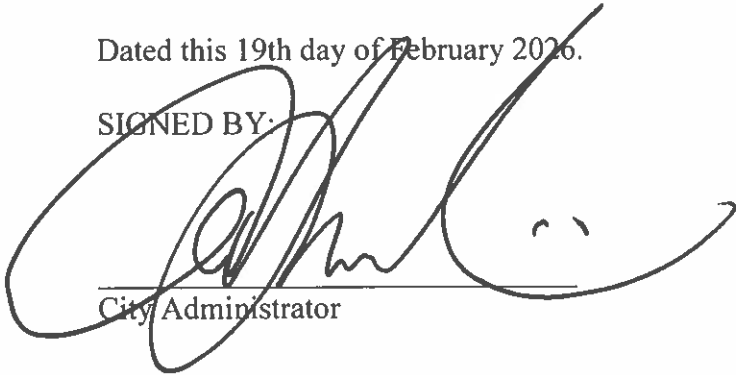 Dated this 19th day of February 2026.
SIGNED BY:
City Administrator